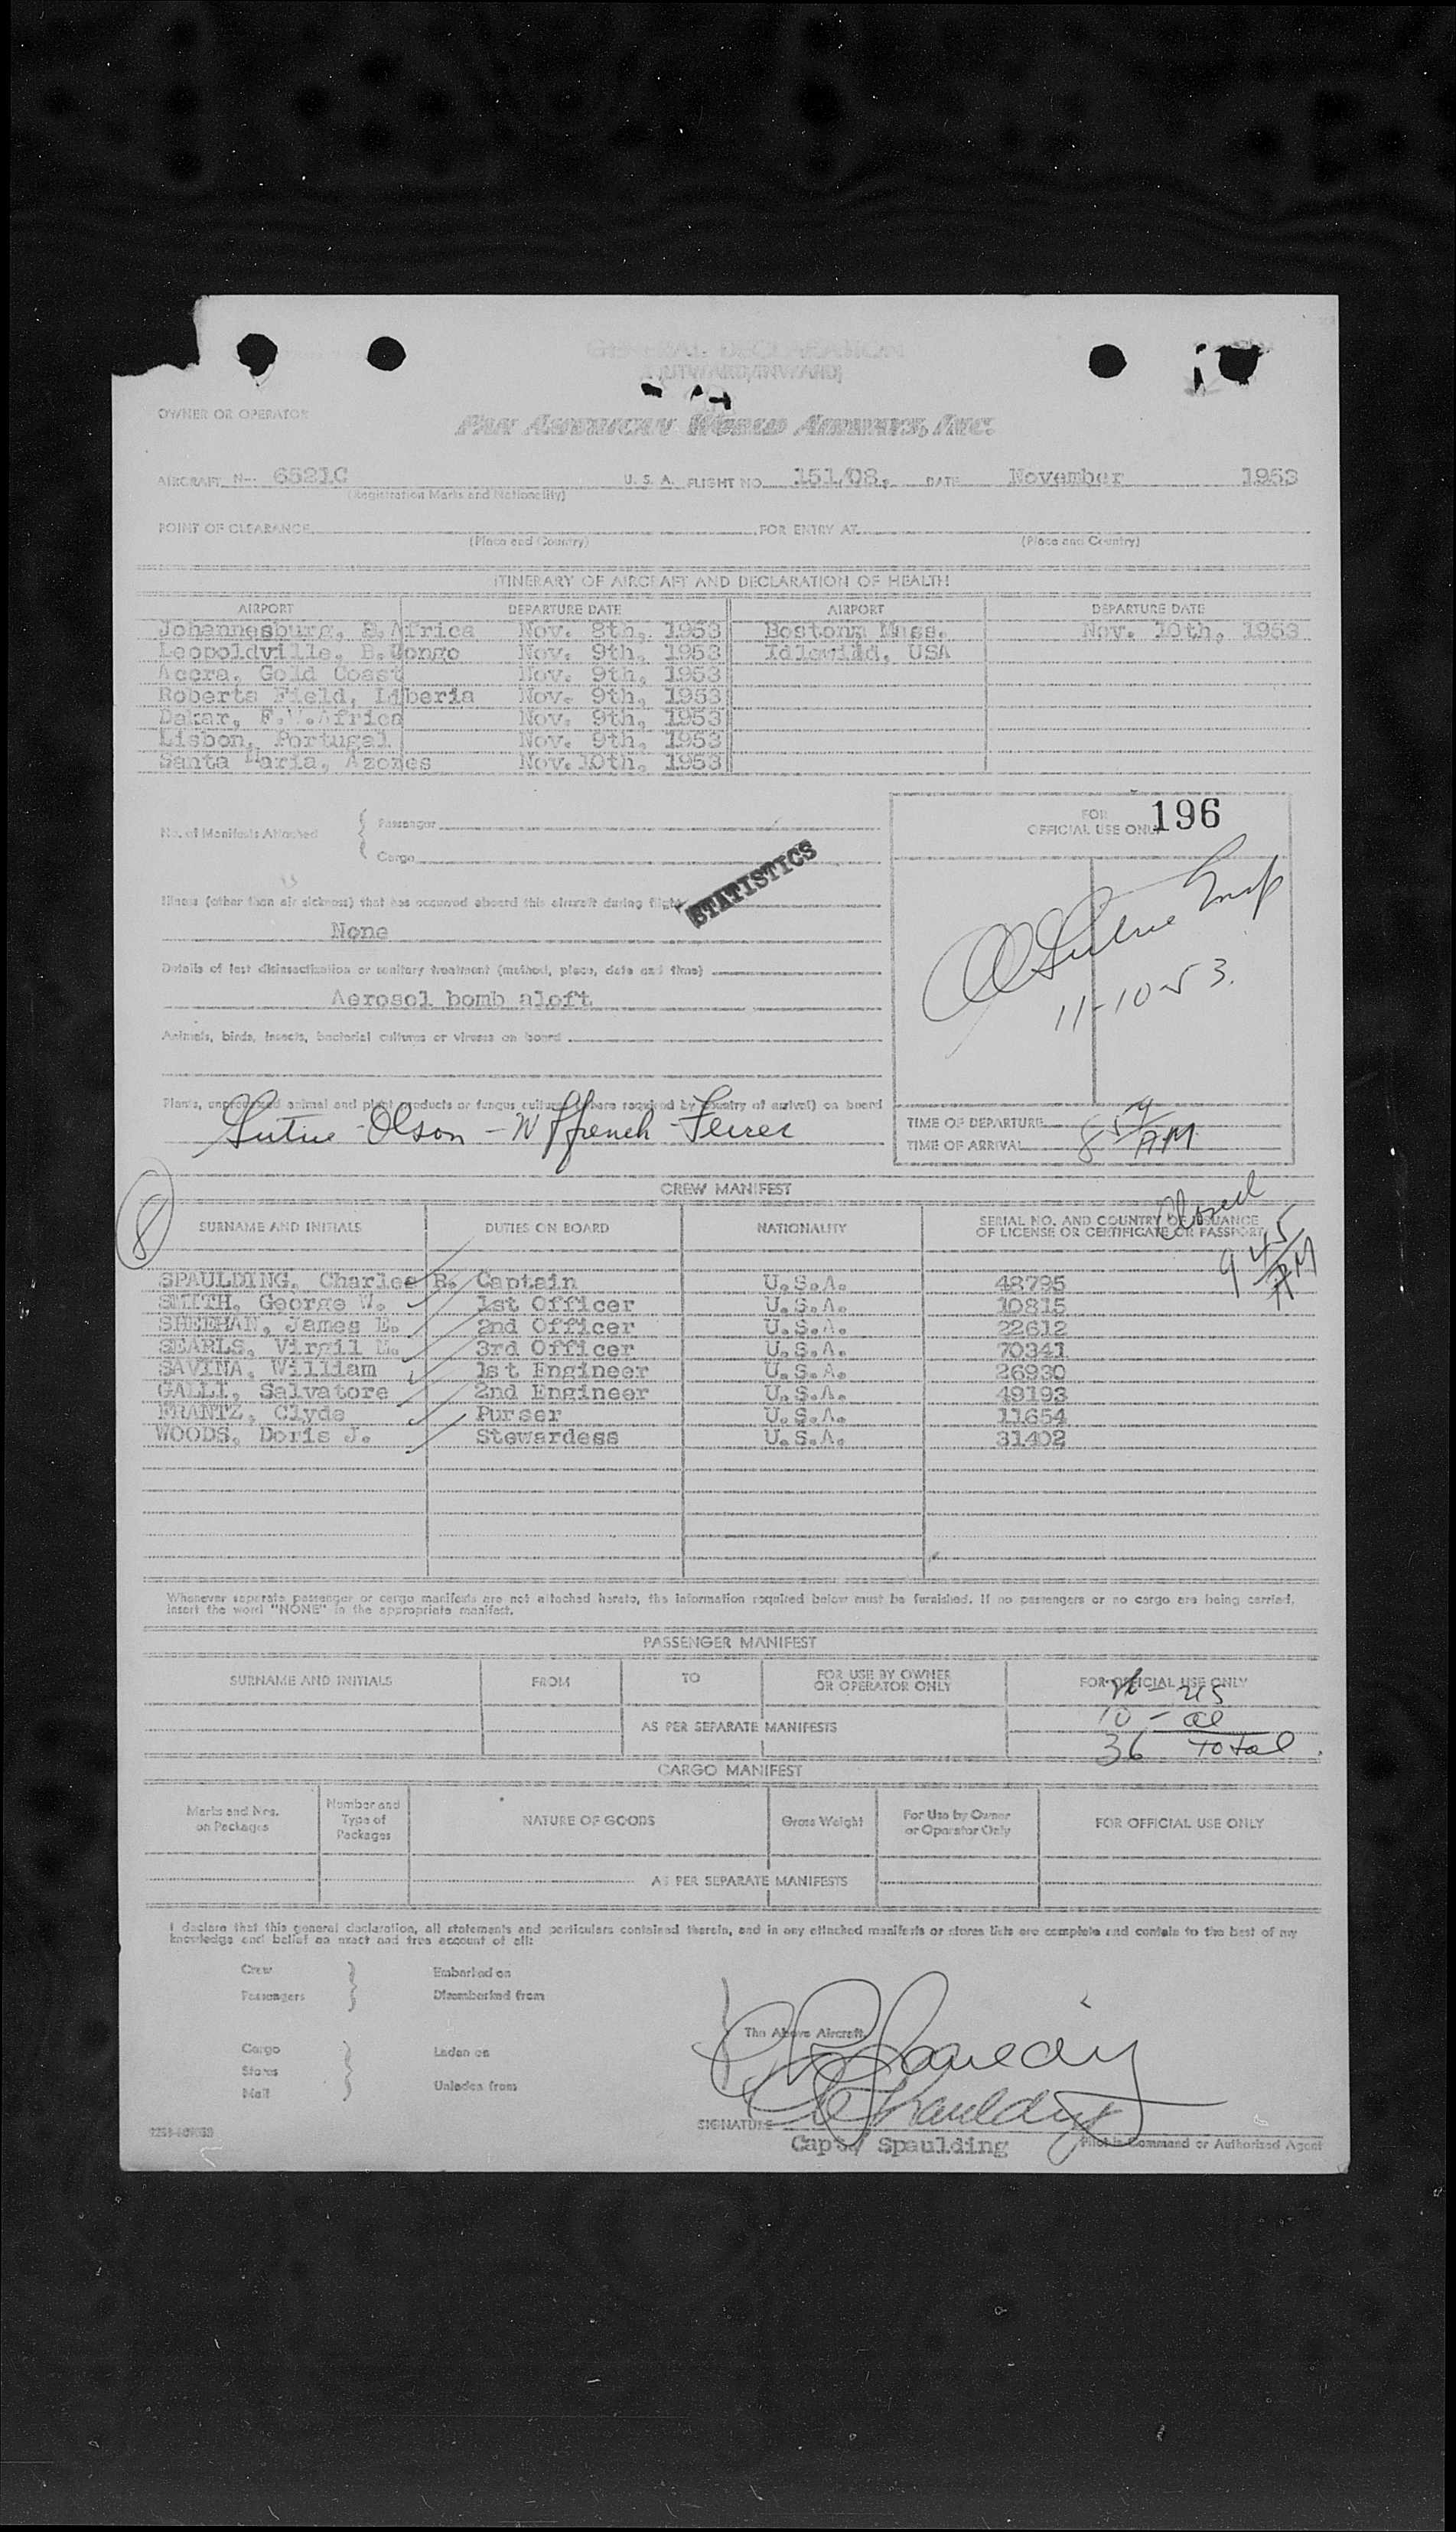 GENERAL DECLARATION
(OUTWARD/INWARD)
OWNER OR OPERATOR
PAN AMERICAN WORLD AIRWAYS, INC.
AIRCRAFT N-: 6521C U. S. A. FLIGHT NO. 151/08, DATE November 1953
(Registration Marks and Nationality)
POINT OF CLEARANCE FOR ENTRY AT
(Place and Country) (Place and Country)
ITINERARY OF AIRCRAFT AND DECLARATION OF HEALTH
AIRPORT DEPARTURE DATE AIRPORT DEPARTURE DATE
Johannesburg, S.Africa Nov. 8th, 1953 Boston, Mass. Nov. 10th, 1953
Leopoldville, B.Congo Nov. 9th, 1953 Idlewild, USA
Accra, Gold Coast Nov. 9th, 1953
Roberts Field, Liberia Nov. 9th, 1953
Dakar, F.W.Africa Nov. 9th, 1953
Lisbon, Portugal Nov. 9th, 1953
Santa Maria, Azores Nov.10th, 1953
FOR
OFFICIAL USE ONLY 196
No. of Manifests Attached
Passenger
Cargo
STATISTICS
Illness (other than air sickness) that has occurred aboard this aircraft during flight
None
Details of last disinsectization or sanitary treatment (method, place, date and time)
Aerosol bomb aloft
11-10-53.
Animals, birds, insects, bacterial cultures or viruses on board
Plants, unprocessed animal and plant products or fungus cultures (where required by country of arrival) on board
Olson - W Ffrench - Ferrer
TIME OF DEPARTURE
TIME OF ARRIVAL 8 59 AM
8
CREW MANIFEST
Closed
9 45 AM
SURNAME AND INITIALS DUTIES ON BOARD NATIONALITY SERIAL NO. AND COUNTRY OF ISSUANCE
OF LICENSE OR CERTIFICATE OR PASSPORT
SPAULDING, Charles R. Captain U.S.A. 48795
SMITH, George W. 1st Officer U.S.A. 10815
SHEEHAN, James E. 2nd Officer U.S.A. 22612
SEARLS, Virgil E. 3rd Officer U.S.A. 70341
SAVINA, William 1st Engineer U.S.A. 26930
GALLI, Salvatore 2nd Engineer U.S.A. 49193
FRANTZ, Clyde Purser U.S.A. 11654
WOODS, Doris J. Stewardess U.S.A. 31402
Whenever separate passenger or cargo manifests are not attached hereto, the information required below must be furnished. If no passengers or no cargo are being carried,
insert the word "NONE" in the appropriate manifest.
PASSENGER MANIFEST
SURNAME AND INITIALS FROM TO FOR USE BY OWNER
OR OPERATOR ONLY FOR OFFICIAL USE ONLY
US
10 - al
AS PER SEPARATE MANIFESTS
36 Total
CARGO MANIFEST
Marks and Nos.
on Packages Number and
Type of
Packages NATURE OF GOODS Gross Weight For Use by Owner
or Operator Only FOR OFFICIAL USE ONLY
AS PER SEPARATE MANIFESTS
I declare that this general declaration, all statements and particulars contained therein, and in any attached manifests or stores lists are complete and contain to the best of my
knowledge and belief an exact and true account of all:
Crew Embarked on
Passengers Disembarked from
The Above Aircraft
Cargo Laden on
Stores
Mail Unladen from
SIGNATURE C R Spaulding
Capt. Spaulding Pilot in Command or Authorized Agent